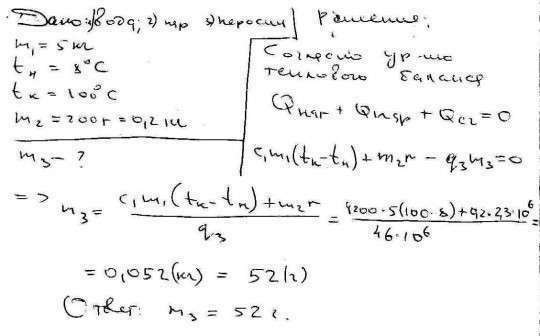 Дано: 1) вода; 2) пар 3) керосин
m₁ = 5 кг
tₙ = 8°C
tₖ = 100°C
m₂ = 200г = 0,2 кг
m₃ - ?
Решение:
Согласно ур-ию
теплового баланса
Qнаг + Qпар + Qсг = 0
c₁m₁(tₖ - tₙ) + m₂r - q₃m₃ = 0
=> m₃ = (c₁m₁(tₖ - tₙ) + m₂r) / q₃ = (4200·5(100-8) + 0,2·2,3·10⁶) / (46·10⁶) =
= 0,052 (кг) = 52 (г)
Ответ: m₃ = 52 г.